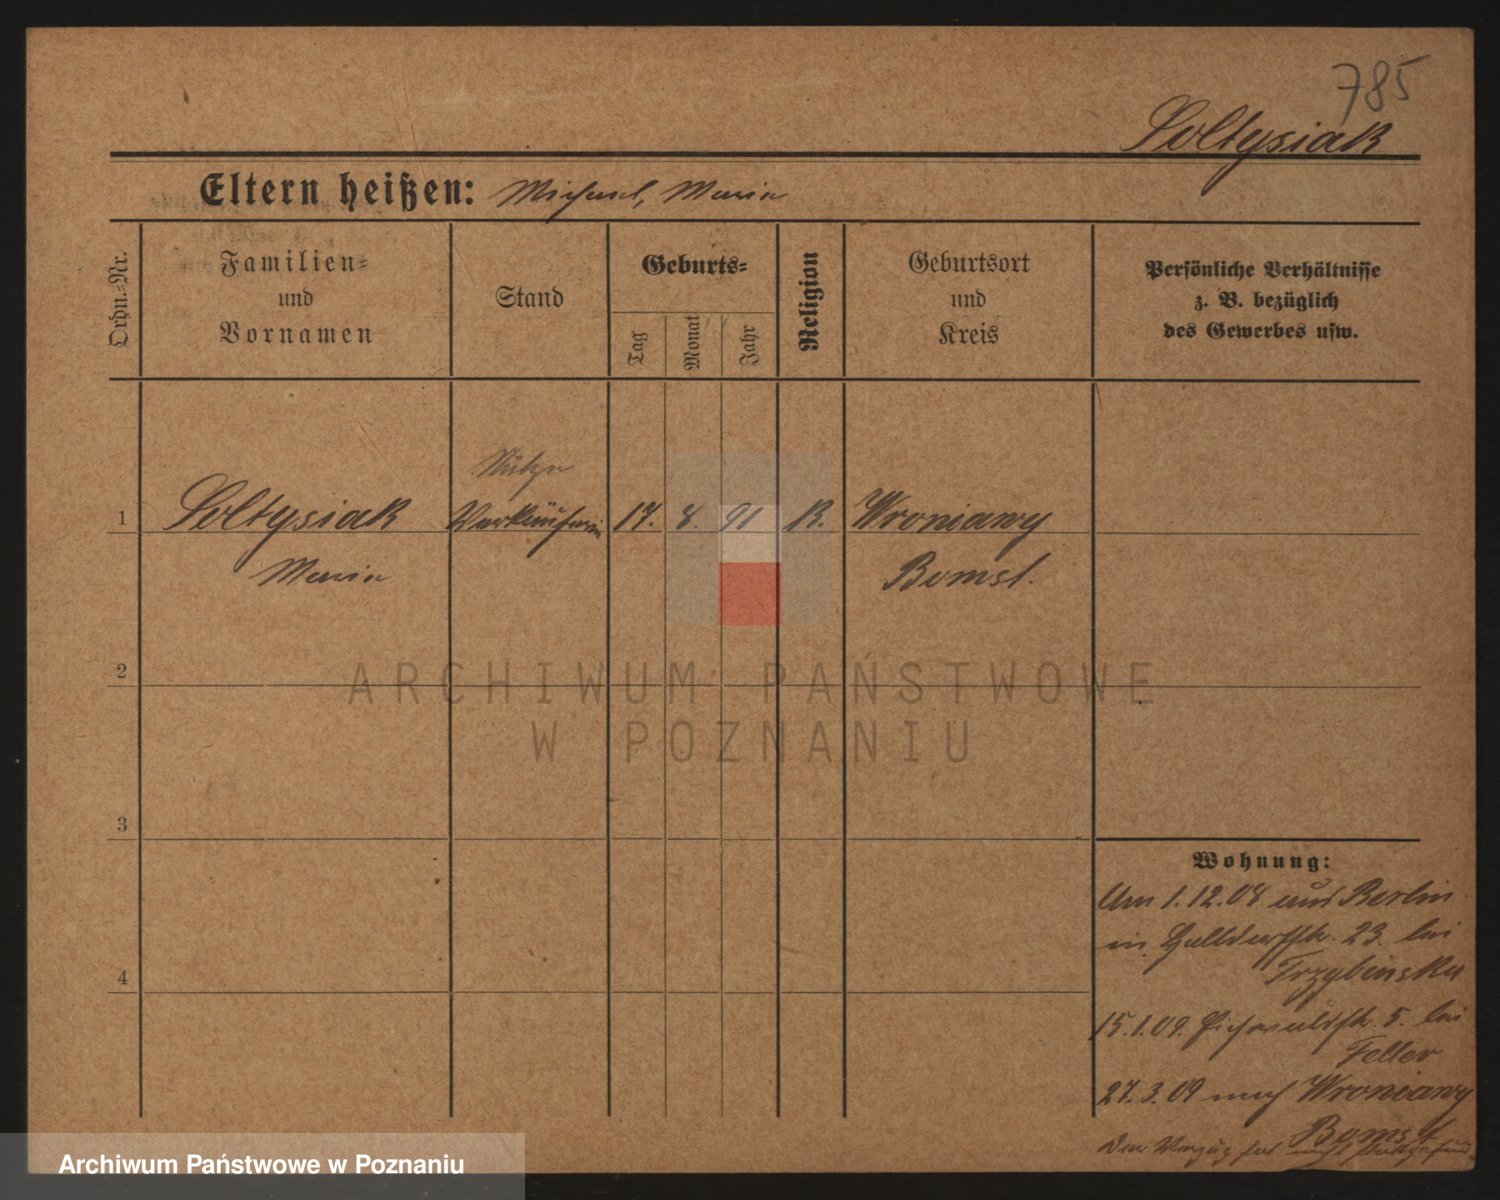 785
Soltysiak
Eltern heißen: Michael, Maria
Ordn.-Nr.
Familien-
und
Vornamen
Stand
Geburts-
Tag
Monat
Jahr
Religion
Geburtsort
und
Kreis
Persönliche Verhältnisse
z. B. bezüglich
des Gewerbes usw.
Stütze
1 Soltysiak Verkäuferin 17. 8. 91 K. Wroniawy
Maria Bomst.
2
3
4
Wohnung:
Am 1.12.08 aus Berlin
in 23. bei
Trzybinska
15.1.09. 5. bei
Feller
27.3.09 nach Wroniawy
Bomst
Der Verzug hat nicht stattgefund
ARCHIWUM PAŃSTWOWE
W POZNANIU
Archiwum Państwowe w Poznaniu